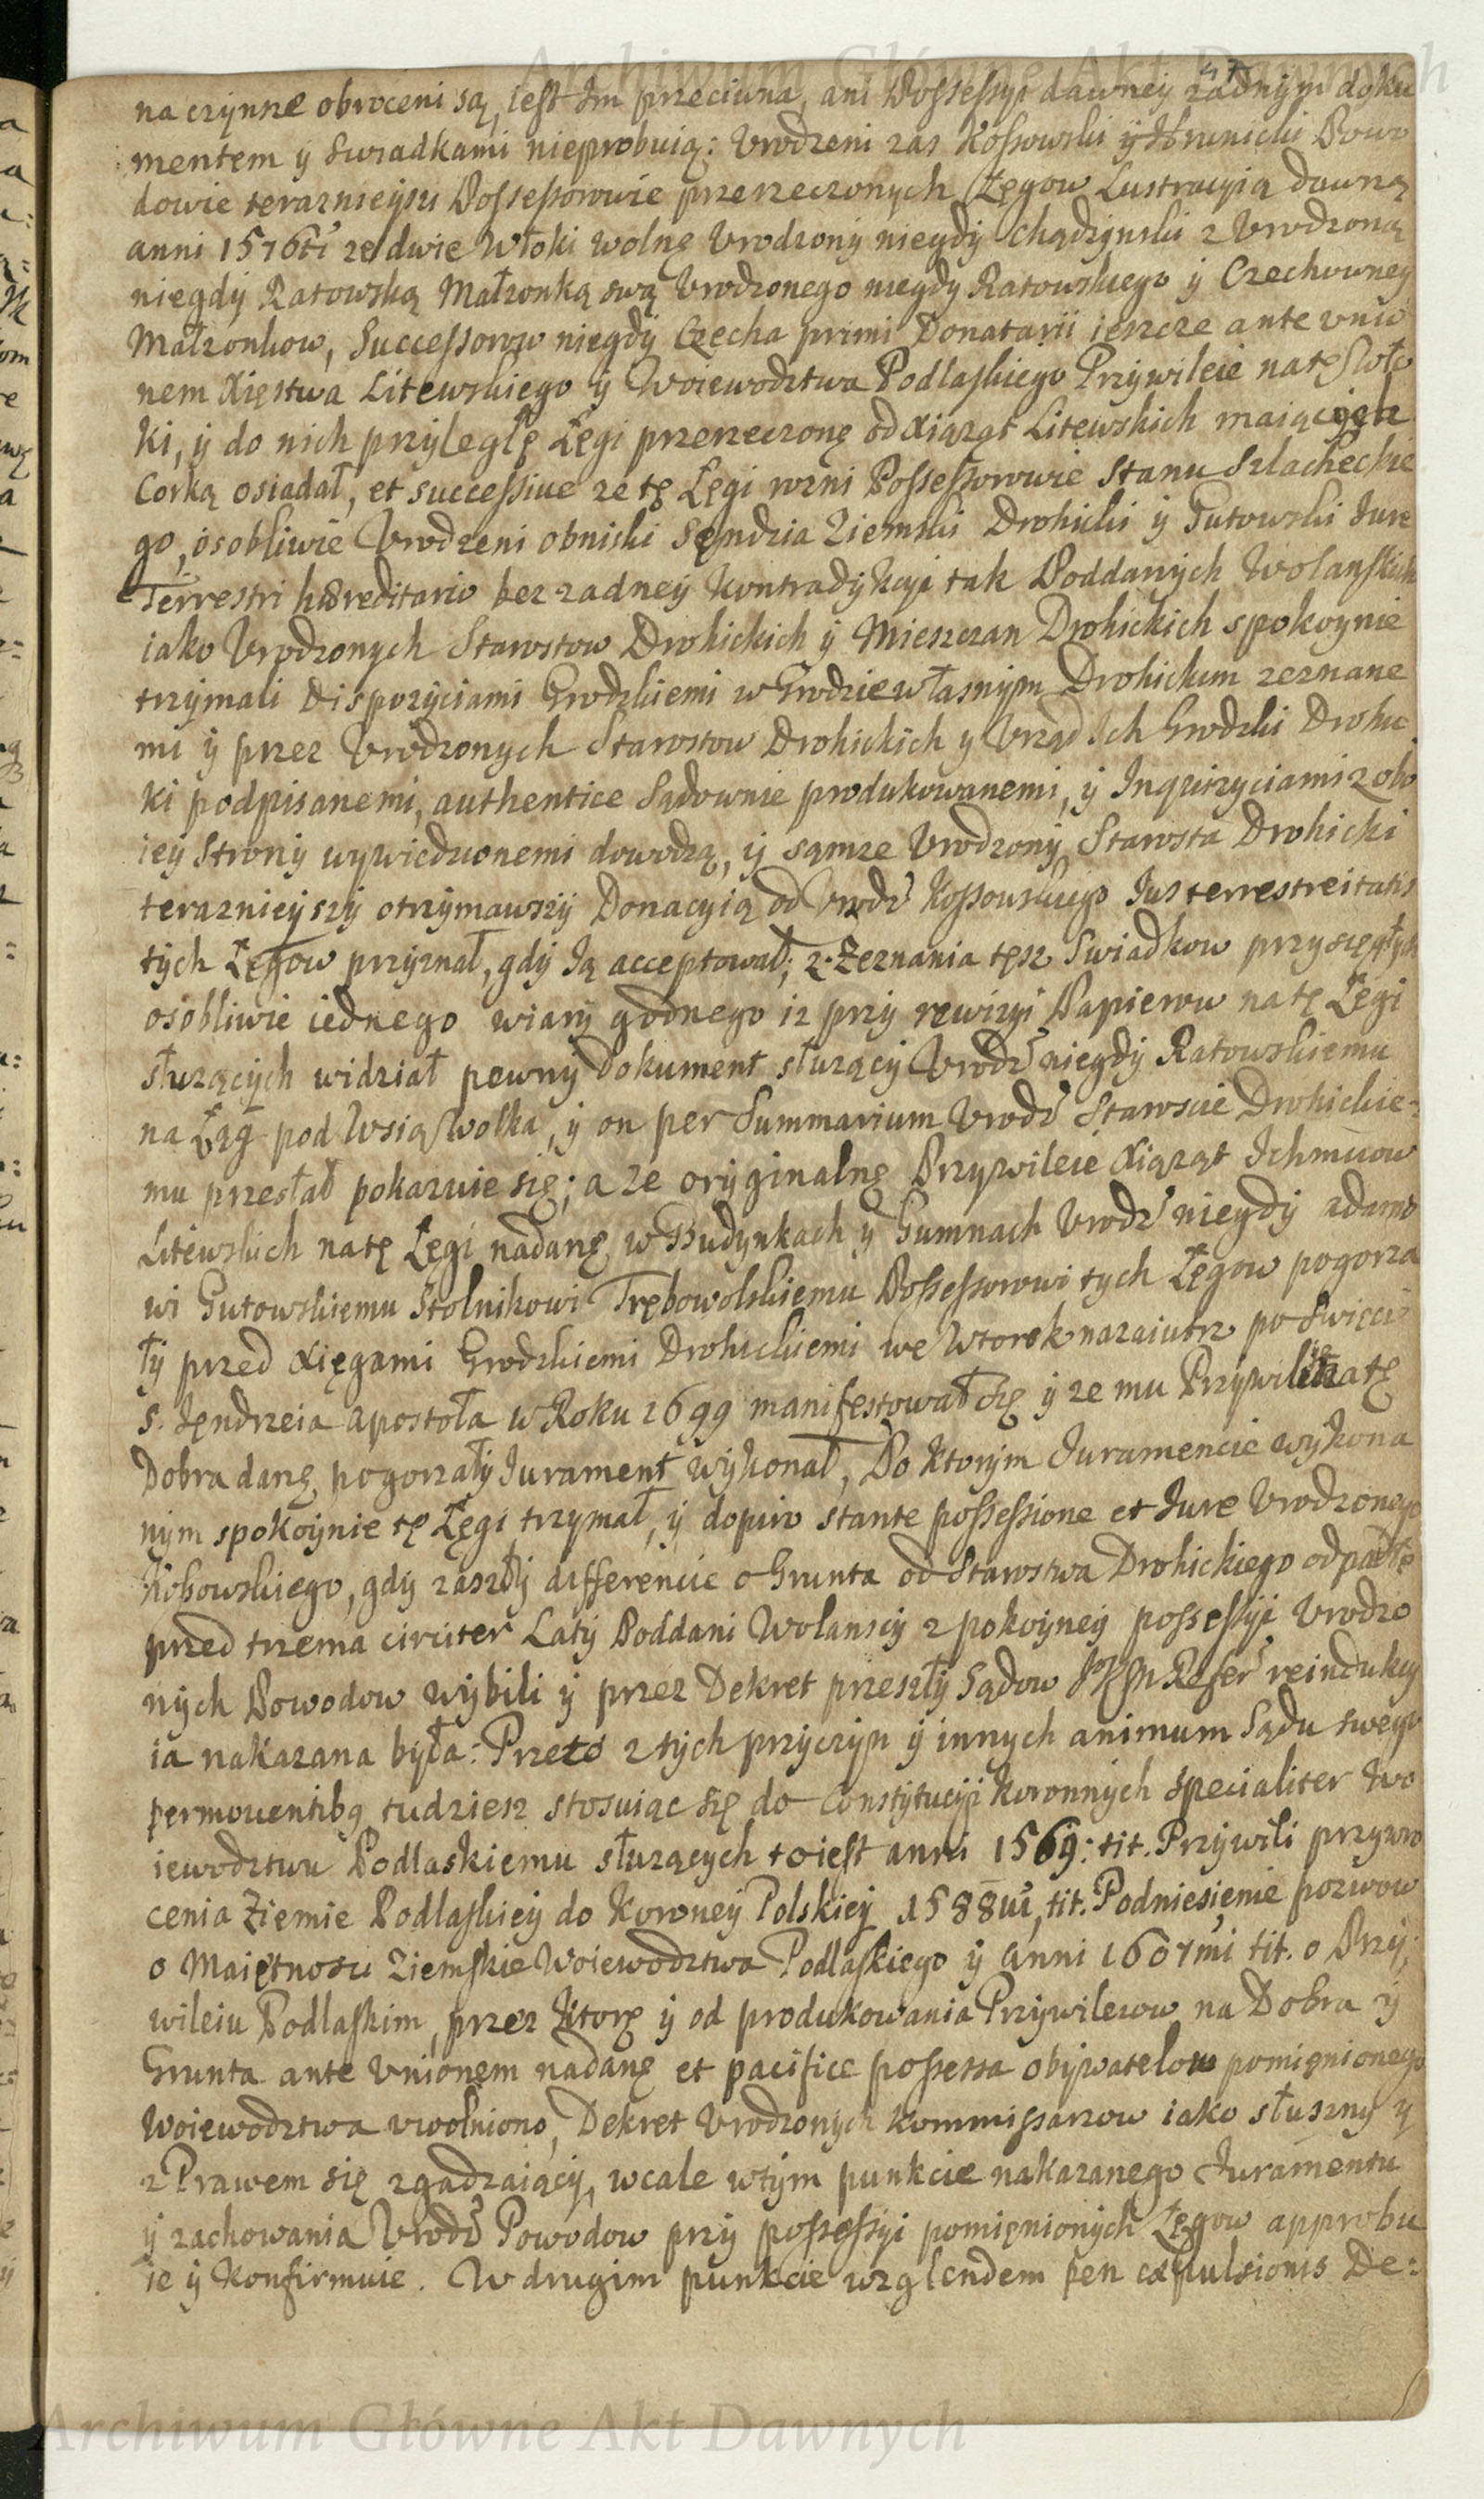 Archiwum Główne Akt Dawnych
47
na czynsze obroceni są, iest Im przeciwna, ani Possessyi dawney żadnym doku
mentem y swiadkami nieprobuią: Urodzeni zas Kossowski y Powo
dowie teraznieyszi Possessorowie przerzeczonych Łęgow Lustracyią dawną
anni 1576ti ze dwie Włoki wolnę Urodzony niegdy Chądzynski z Urodzoną
niegdy Ratowską Małzonką swą Urodzonego niegdy Ratowskiego y Czechowney
Małzonkow, Successorow niegdy Czecha primi Donatarii ieszcze ante unio
nem Xięstwa Litewskiego y Woiewodztwa Podlaskiego Przywileie na tę Wło
ki, y do nich przyległę Łęgi przerzeczonę od Xiąząt Litewskich maiących
Corką osiadał, et successive ze tę Łęgi rozni Possessorowie Stanu Szlacheckie
go, osobliwie Urodzeni obniski Sęndzia Ziemski Drohicki y Gutowski Jure
Terrestri hæreditario bez zadney Kontradykcyi tak Poddanych Wolanskich
iako Urodzonych Starostow Drohickich y Mieszczan Drohickich spokoynie
trzymali Dispozyciami Grodzkiemi w Grodzie własnym Drohickim zeznane
mi y przez Urodzonych Starostow Drohickich y Urząd Ich Grodzki Drohic
ki podpisanemi, authentice Sądownie produkowanemi, y Inquizyciami z obo
iey Strony wywiedzionemi dowodzą, y sąmze Urodzony Starosta Drohicki
teraznieyszy otrzymawszy Donacyią od Urodz Kossowskiego Jus terrestreitatis
tych Łęgow przyznał, gdy Ją acceptował; z Zeznania tęsz Swiadkow przysięgłych
osobliwie iednego wiary godnego iz przy rewizyi Papierow na tę Łęgi
słuzących widział pewny Dokument słuzący Urodz niegdy Ratowskiemu
na Łąg pod Wsią Wolka, y on per Summarium Urodz Staroscie Drohickie-
mu przesłał pokazuie się; a ze oryginalnę Przywileie Xiąząt Ichmciow
Litewskich na tę Łęgi nadanę, w Budynkach y Gumnach Urodz niegdy adamo
wi Gutowskiemu Stolnikowi Trębowolskiemu Possessorowi tych Łęgow pogorza
ły przed Xięgami Grodzkiemi Drohickiemi we Wtorek nazaiutrz po Swięcie
S. Jęndrzeia apostoła w Roku 1699 manifestował się y ze mu na tę
Dobra danę, pogorzały Jurament wykonał, Po ktorym Juramencie wykona
nym spokoynie tę Łęgi trzymał, y dopiro stante possessione et Jure Urodzonego
Kossowskiego, gdy zaszły differencie o Grunta od Starostwa Drohickiego odpadłe
przed trzema circiter Laty Poddani Wolanscy z pokoyney possessyi Urodzo
nych Powodow wybili y przez Dekret przeszły Sądow JKM Refer reindukcy
ia nakazana była: Przeto z tych przyczyn y innych animum Sądu swego
permoventibq tudziesz stosuiąc się do Constytucyi Koronnych specialiter Wo
iewodztwu Podlaskiemu słuzących to iest anni 1569: tit. Przywili przywro
cenia Ziemie Podlaskiey do Korony Polskiey 1588vi, tit. Podniesienie pozwow
o Maiętnosci Ziemskie Woiewodztwa Podlaskiego y anni 1607mi tit. o Przy:
wileiu Podlaskim, przez Ktorę y od produkowania Przywilerow na Dobra y
Grunta ante Unionem nadanę et pacifice possessa obywatelow pomięnionego
Woiewodztwa uwolniono, Dekret Urodzonych Kommissarzow iako słuszny y
z Prawem się zgadzaiący, wcale w tym punkcie nakazanego Juramentu
y zachowania Urodz Powodow przy possessyi pomięnionych Łęgow approbu
ie y Konfirmuie. W drugim punkcie wzglendem pen expulsionis De:
Archiwum Główne Akt Dawnych